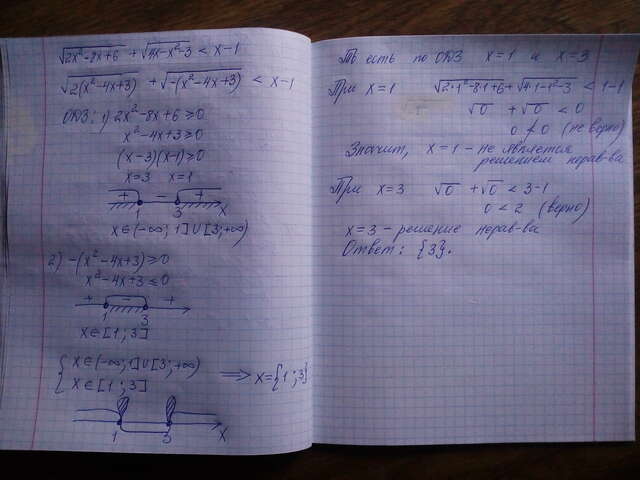 √2x²-8x+6 + √4x-x²-3 < x-1
√2(x²-4x+3) + √-(x²-4x+3) < x-1
ОДЗ: 1) 2x²-8x+6 ≥ 0
x²-4x+3 ≥ 0
(x-3)(x-1) ≥ 0
x=3 x=1
+ - +
1 3 x
x∈(-∞; 1]∪[3; +∞)
2) -(x²-4x+3) ≥ 0
x²-4x+3 ≤ 0
+ - +
1 3
x∈[1; 3]
{ x∈(-∞; 1]∪[3; +∞)
x∈[1; 3] ⟹ x={1; 3}
1 3 x
То есть по ОДЗ x=1 и x=3
При x=1 √2·1²-8·1+6 + √4·1-1²-3 < 1-1
√0 + √0 < 0
0 ≮ 0 (не верно)
Значит, x=1 - не является
решением нерав-ва
При x=3 √0 + √0 < 3-1
0 < 2 (верно)
x=3 - решение нерав-ва
Ответ: {3}.